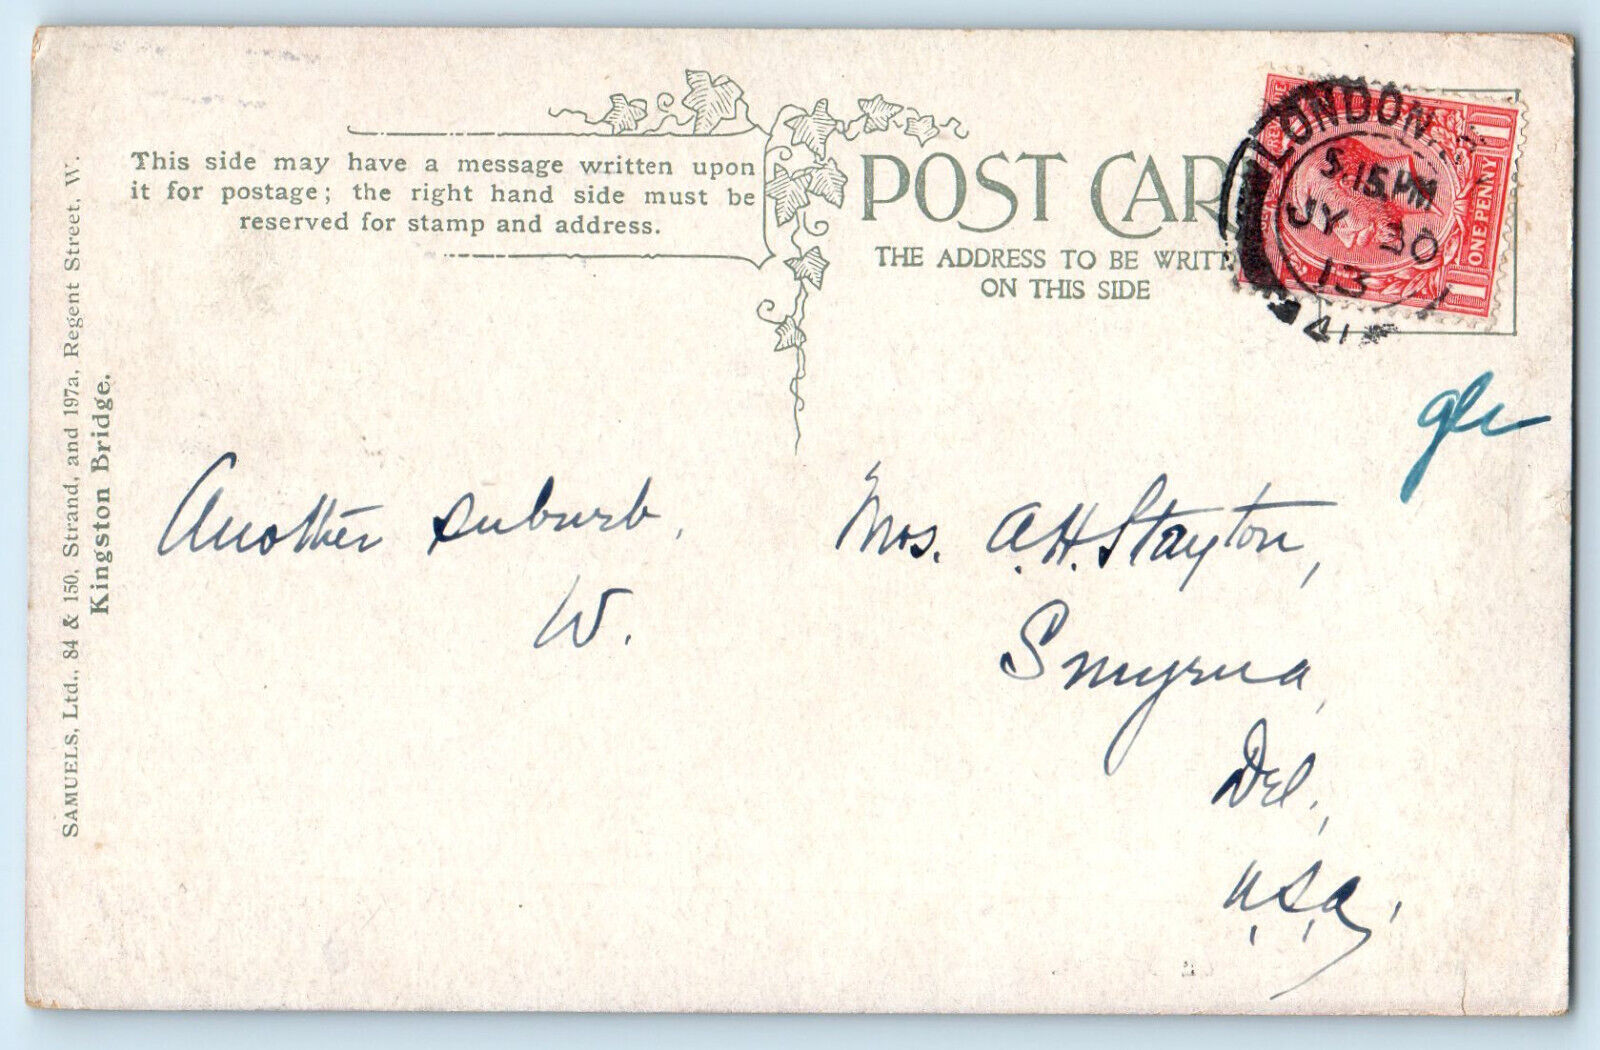 This side may have a message written upon
it for postage; the right hand side must be
reserved for stamp and address.
POST CAR
THE ADDRESS TO BE WRITT
ON THIS SIDE
LONDON
5.15.PM
JY 30
13
41
ONE PENNY
1
1
SAMUELS, Ltd., 84 & 150, Strand, and 197a, Regent Street, W.
Kingston Bridge.
Another suburb.
W.
Mrs. A.H. Stayton,
Smyrna,
Del,
U.S.A.